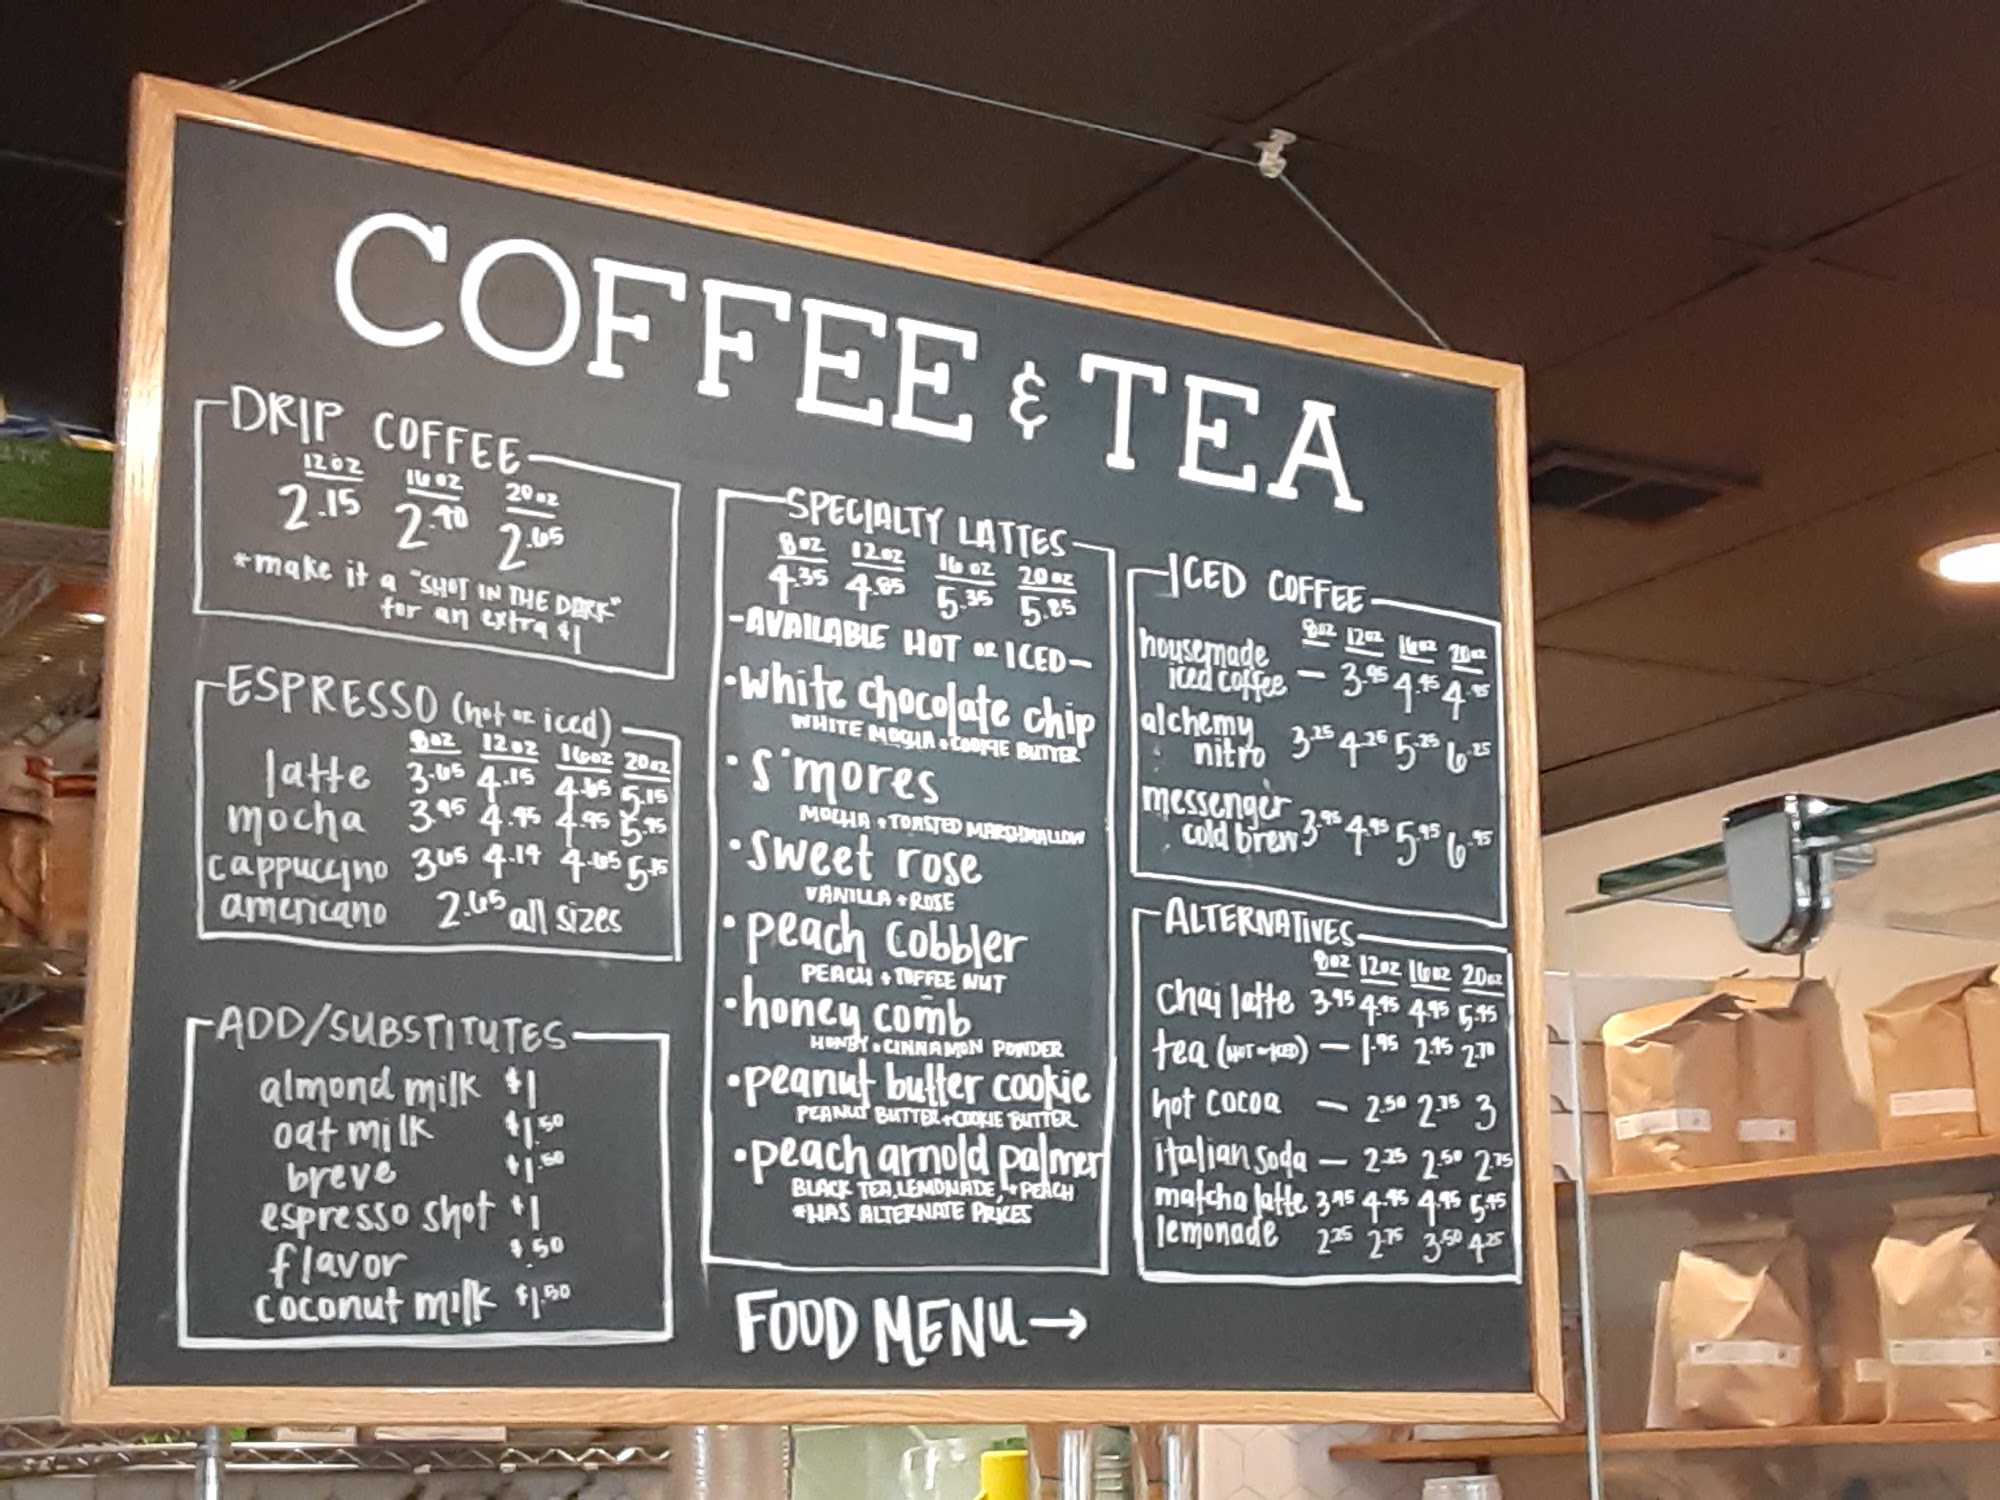 COFFEE & TEA
DRIP COFFEE
12oz 16oz 20oz
2.15 2.40 2.65
*make it a "SHOT IN THE DARK"
for an extra $1
ESPRESSO (hot or iced)
8oz 12oz 16oz 20oz
latte 3.65 4.15 4.65 5.15
mocha 3.95 4.45 4.95 5.45
cappuccino 3.65 4.14 4.65 5.15
americano 2.65 all sizes
ADD/SUBSTITUTES
almond milk $1
oat milk $1.50
breve $1.50
espresso shot $1
flavor $.50
coconut milk $1.50
SPECIALTY LATTES
8oz 12oz 16oz 20oz
4.35 4.85 5.35 5.85
-AVAILABLE HOT OR ICED-
•white chocolate chip
WHITE MOCHA + COOKIE BUTTER
•s'mores
MOCHA + TOASTED MARSHMALLOW
•sweet rose
VANILLA + ROSE
•peach cobbler
PEACH + TOFFEE NUT
•honey comb
HONEY + CINNAMON POWDER
•peanut butter cookie
PEANUT BUTTER + COOKIE BUTTER
•peach arnold palmer
BLACK TEA, LEMONADE, + PEACH
*HAS ALTERNATE PRICES
FOOD MENU→
ICED COFFEE
8oz 12oz 16oz 20oz
housemade
iced coffee — 3.95 4.45 4.95
alchemy
nitro 3.25 4.25 5.25 6.25
messenger
cold brew 3.95 4.95 5.95 6.95
ALTERNATIVES
8oz 12oz 16oz 20oz
chai latte 3.95 4.45 4.95 5.45
tea (HOT or ICED) — 1.95 2.45 2.70
hot cocoa — 2.50 2.75 3
italian soda — 2.25 2.50 2.75
matcha latte 3.95 4.45 4.95 5.45
lemonade 2.25 2.75 3.50 4.25